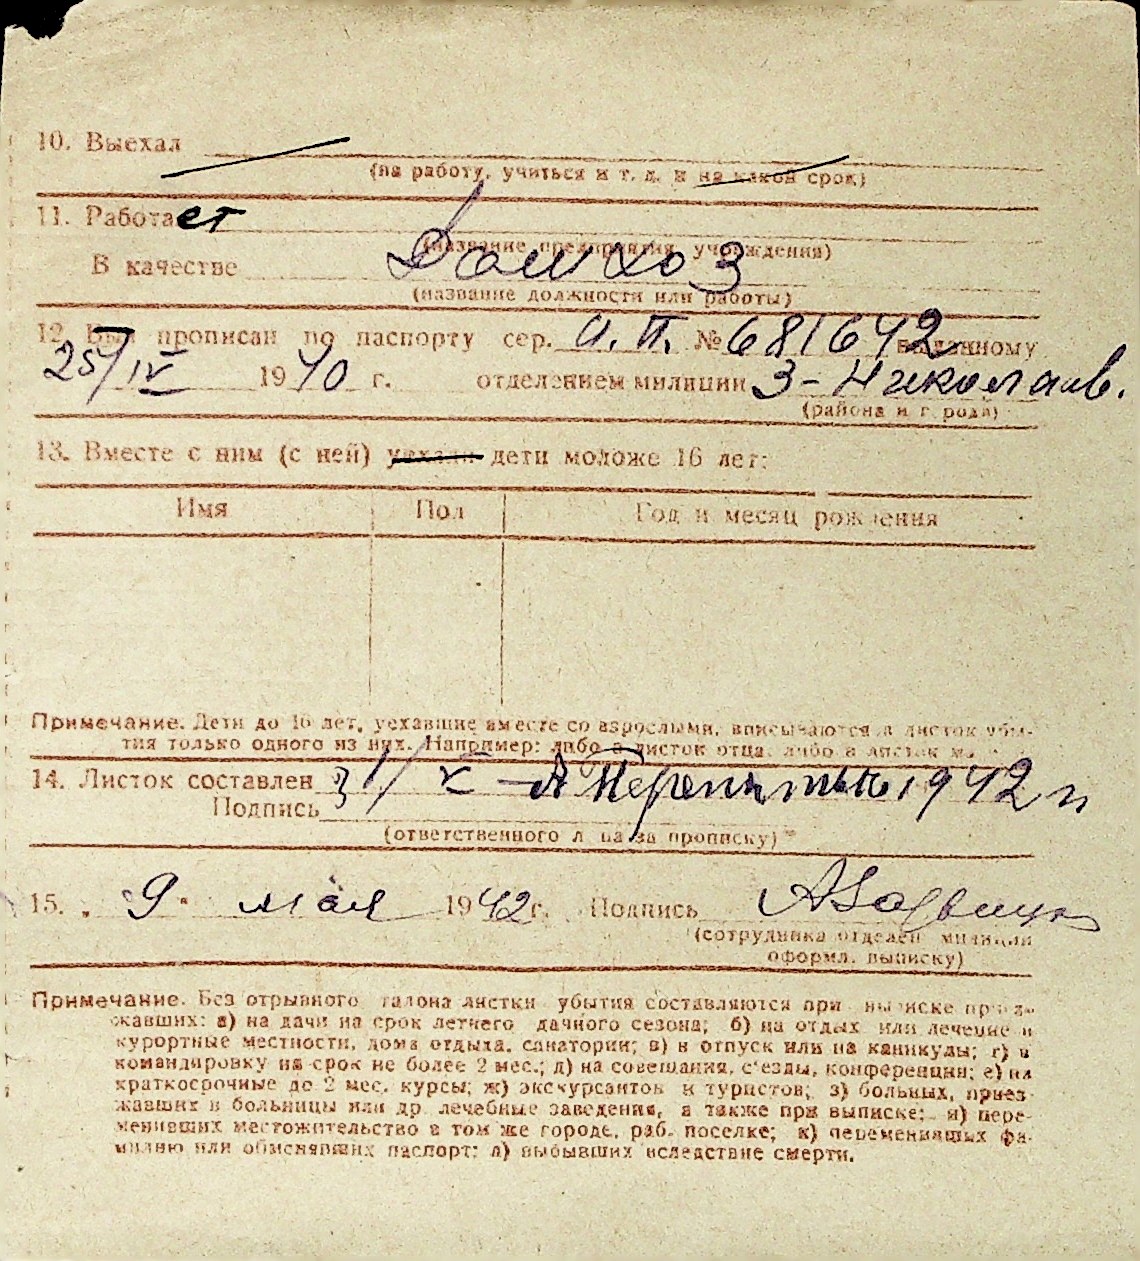 10. Выехал
(на работу, учиться и т. д. и на какой срок)
11. Работает
(название предприятия, учреждения)
В качестве Домхоз
(название должности или работы)
12. Был прописан по паспорту сер. А. П. № 681642 выданному
25/IV 1940 г. отделением милиции 3-Николаев.
(района и города)
13. Вместе с ним (с ней) уехали дети моложе 16 лет:
Имя Пол Год и месяц рождения
Примечание. Дети до 16 лет, уехавшие вместе со взрослыми, вписываются в листок убы-
тия только одного из них. Например: либо в листок отца, либо в листок
14. Листок составлен 1942 г
Подпись
(ответственного лица за прописку)
15. „ 9 " мая 1942 г. Подпись
(сотрудника отделен. милиции
оформл. выписку)
Примечание. Без отрывного талона листки убытия составляются при выписке приез-
жавших: а) на дачи на срок летнего дачного сезона; б) на отдых или лечение в
курортные местности, дома отдыха, санатории; в) в отпуск или на каникулы; г) в
командировку на срок не более 2 мес.; д) на совещания, с'езды, конференции; е) на
краткосрочные до 2 мес. курсы; ж) экскурсантов и туристов; з) больных, приез-
жавших в больницы или др. лечебные заведения, а также при выписке: и) пере-
менивших местожительство в том же городе, раб. поселке; к) переменивших фа-
милию или обменявших паспорт; л) выбывших вследствие смерти.